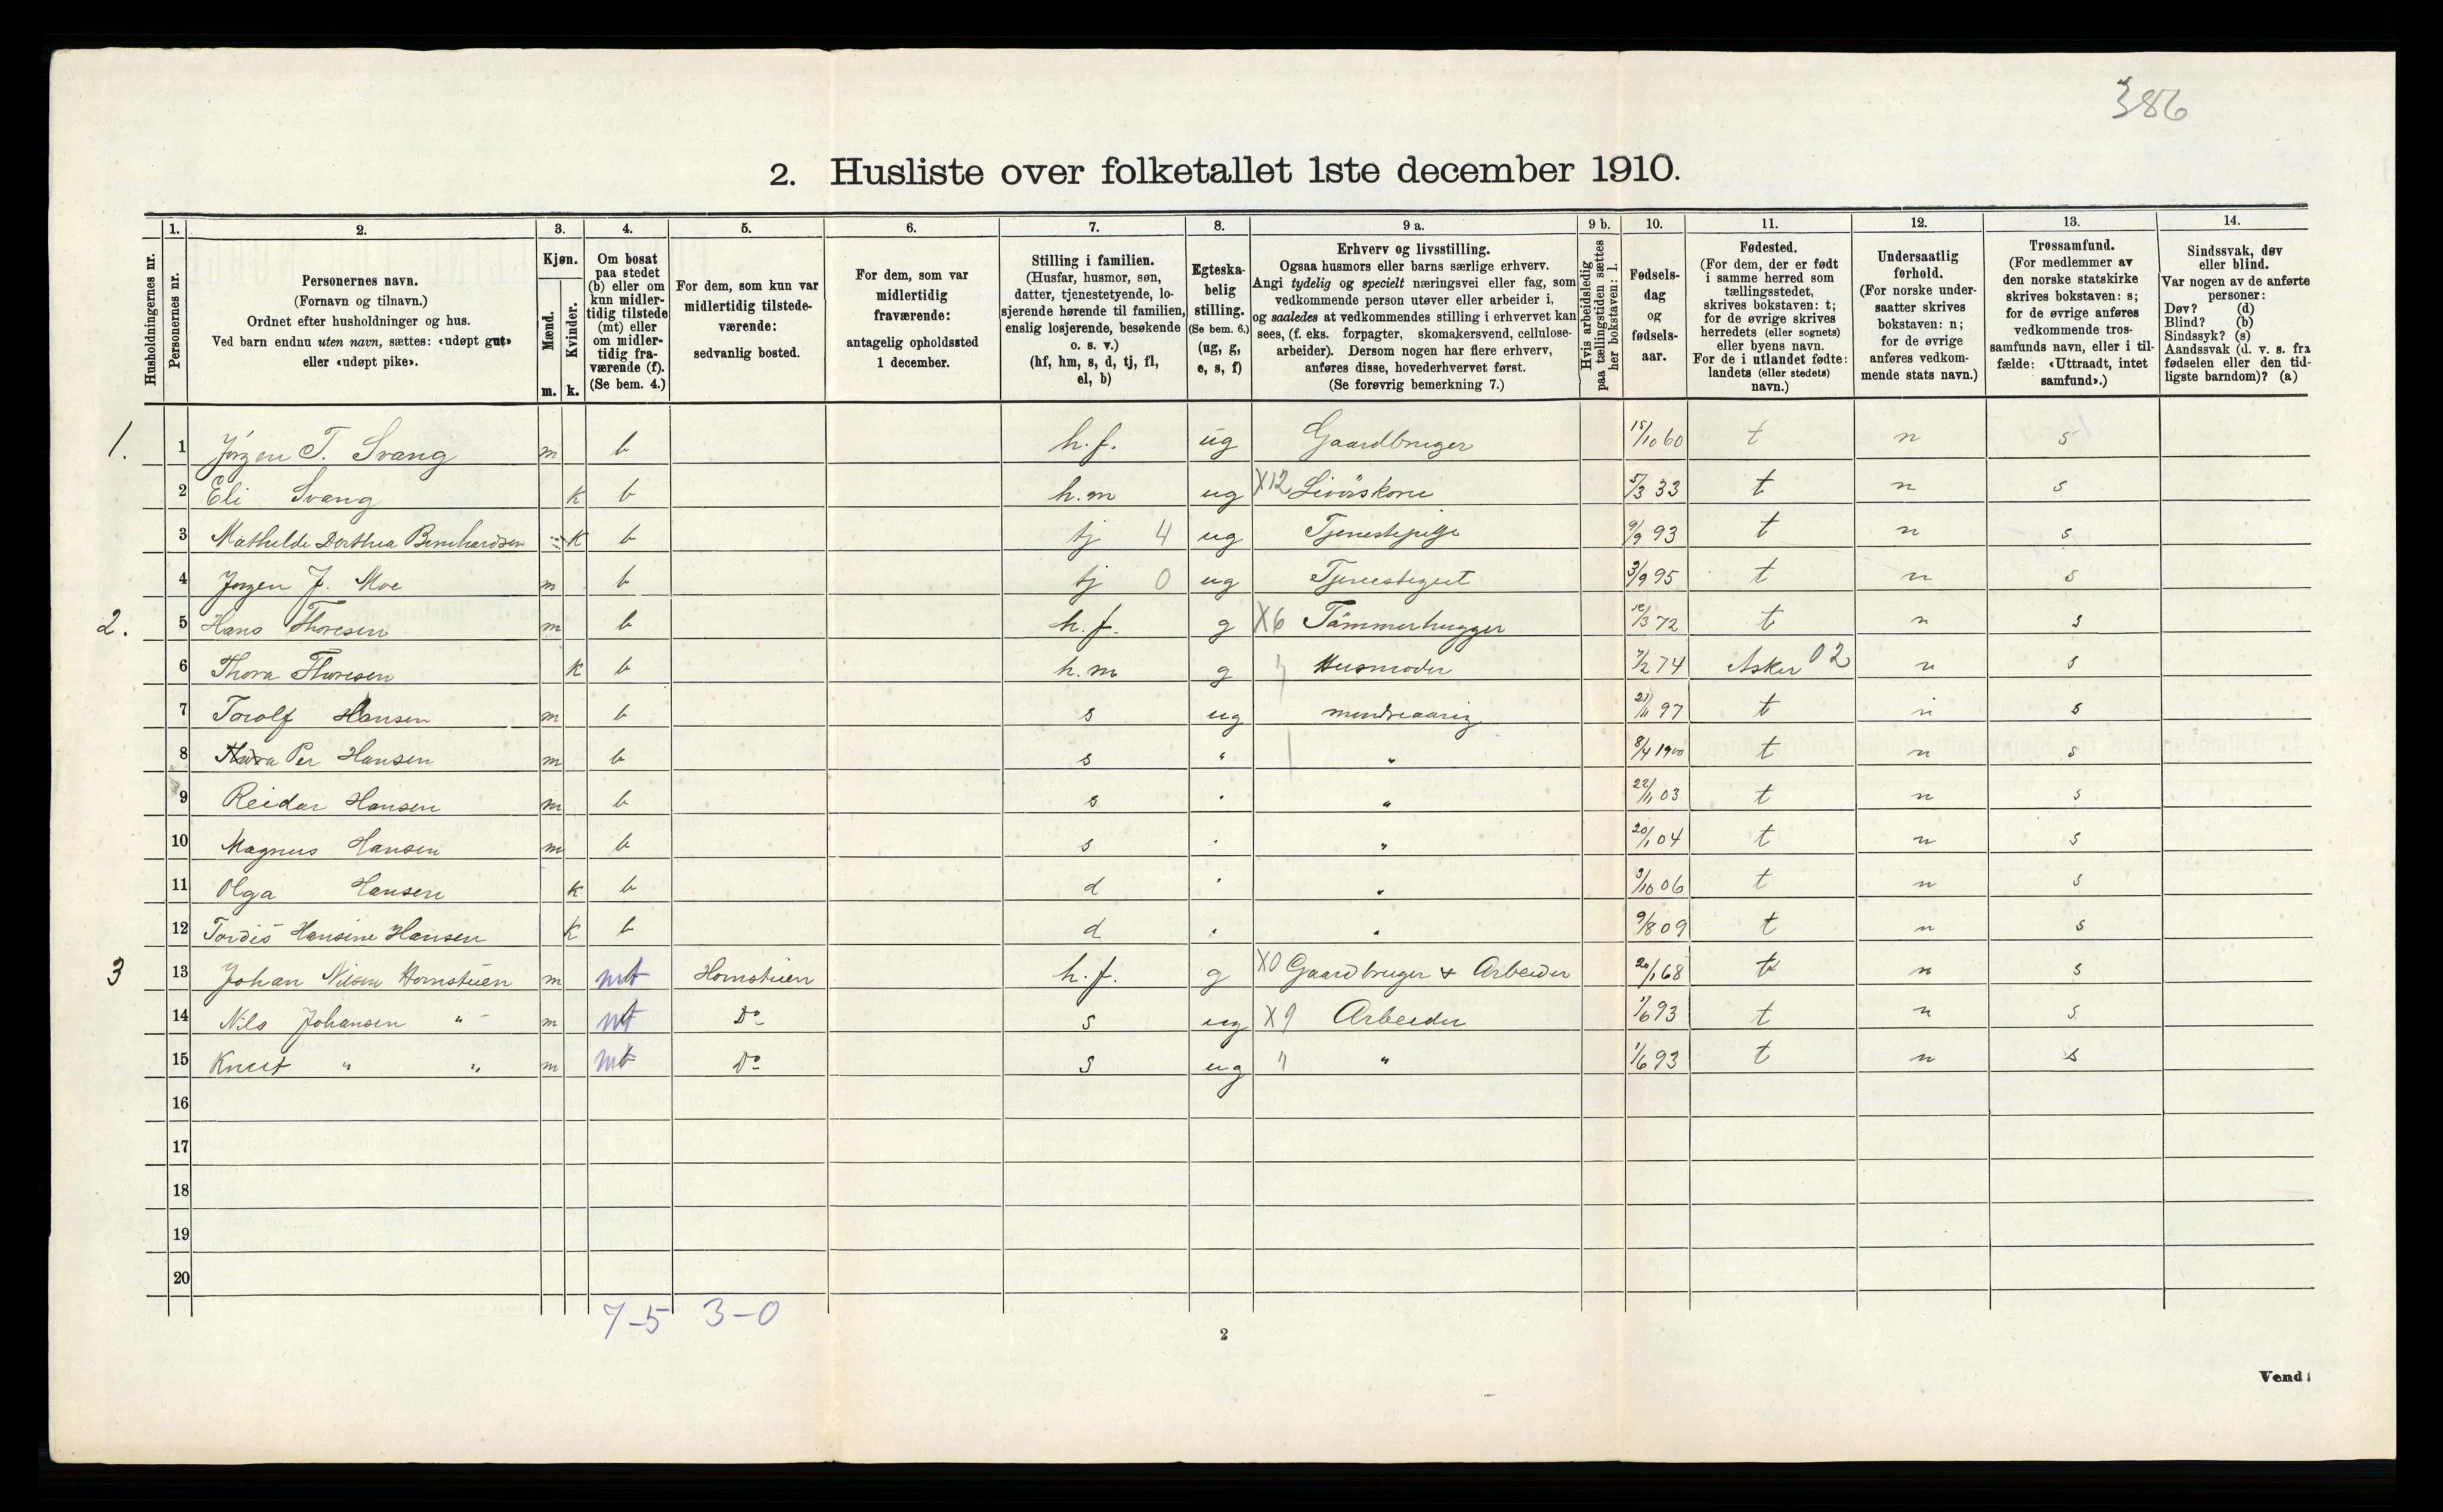 386
2. Husliste over folketallet 1ste december 1910.
1. 2. 3. 4. 5. 6. 7. 8. 9 a. 9 b. 10. 11. 12. 13. 14.
Husholdningernes nr.
Personernes nr.
Personernes navn.
(Fornavn og tilnavn.)
Ordnet efter husholdninger og hus.
Ved barn endnu uten navn, sættes: «udøpt gut»
eller «udøpt pike».
Kjøn.
Mænd.
Kvinder.
m. k.
Om bosat
paa stedet
(b) eller om
kun midler-
tidig tilstede
(mt) eller
om midler-
tidig fra-
værende (f).
(Se bem. 4.)
For dem, som kun var
midlertidig tilstede-
værende:
sedvanlig bosted.
For dem, som var
midlertidig
fraværende:
antagelig opholdssted
1 december.
Stilling i familien.
(Husfar, husmor, søn,
datter, tjenestetyende, lo-
sjerende hørende til familien,
enslig losjerende, besøkende
o. s. v.)
(hf, hm, s, d, tj, fl,
el, b)
Egteska-
belig
stilling.
(Se bem. 6.)
(ug, g,
e, s, f)
Erhverv og livsstilling.
Ogsaa husmors eller barns særlige erhverv.
Angi tydelig og specielt næringsvei eller fag, som
vedkommende person utøver eller arbeider i,
og saaledes at vedkommendes stilling i erhvervet kan
sees, (f. eks. forpagter, skomakersvend, cellulose-
arbeider). Dersom nogen har flere erhverv,
anføres disse, hovederhvervet først.
(Se forøvrig bemerkning 7.)
Hvis arbeidsledig
paa tællingstiden sættes
her bokstaven: l.
Fødsels-
dag
og
fødsels-
aar.
Fødested.
(For dem, der er født
i samme herred som
tællingsstedet,
skrives bokstaven: t;
for de øvrige skrives
herredets (eller sognets)
eller byens navn.
For de i utlandet fødte:
landets (eller stedets)
navn.)
Undersaatlig
forhold.
(For norske under-
saatter skrives
bokstaven: n;
for de øvrige
anføres vedkom-
mende stats navn.)
Trossamfund.
(For medlemmer av
den norske statskirke
skrives bokstaven: s;
for de øvrige anføres
vedkommende tros-
samfunds navn, eller i til-
fælde: «Uttraadt, intet
samfund».)
Sindssvak, døv
eller blind.
Var nogen av de anførte
personer:
Døv? (d)
Blind? (b)
Sindssyk? (s)
Aandssvak (d. v. s. fra
fødselen eller den tid-
ligste barndom)? (a)
1. 1 Jörgen T. Svang m b h. f. ug Gaardbruger 15/10 60 t n s
2 Eli Svang k b h. m ug X12 5/3 33 t n s
3 Mathilde Dorthea Bernhardsen k b tj 4 ug Tjenestepige 9/9 93 t n s
4 Jorgen J. Moe m b tj 0 ug Tjenestegut 3/9 95 t n s
2. 5 Hans Thoresen m b h. f. g X6 Tömmerhugger /3 72 t n s
6 Thora Thoresen k b h. m g " Husmoder 7/2 74 Asker 02 n s
7 Torolf Hansen m b s ug mindreaarig 21/11 97 t n s
8 Per Hansen m b s " " 8/4 1900 t n s
9 Reidar Hansen m b s " " 22/11 03 t n s
10 Magnus Hansen m b s " " 20/1 04 t n s
11 Olga Hansen k b d " " 9/10 06 t n s
12 Tordis Hansine Hansen k b d " " 9/8 09 t n s
3 13 Johan Nilsen Hornstuen m mt Hornstuen h. f. g X0 Gaardbruger & Arbeider 20/1 68 t n s
14 Nils Johansen " m mt Do s ug X9 Arbeider 1/6 93 t n s
15 Knut " " m mt Do s ug " " 1/6 93 t n s
16
17
18
19
20
7-5 3-0
2
Vend